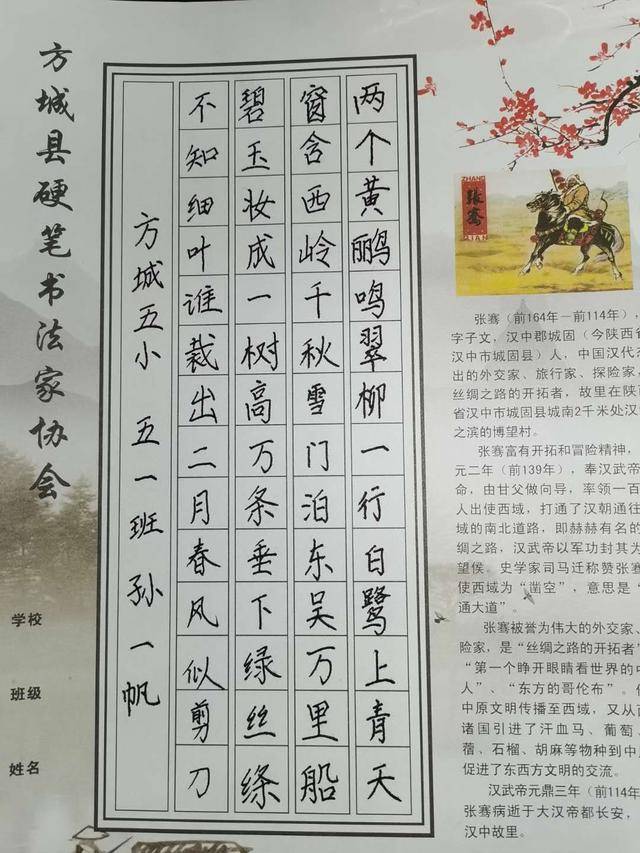 方城县硬笔书法家协会
两个黄鹂鸣翠柳一行白鹭上青天
窗含西岭千秋雪门泊东吴万里船
碧玉妆成一树高万条垂下绿丝绦
不知细叶谁裁出二月春风似剪刀
方城五小 五一班 孙一帆
学校
班级
姓名
ZHANG
张骞
QIAN
张骞（前164年－前114年），
字子文，汉中郡城固（今陕西省
汉中市城固县）人，中国汉代
出的外交家、旅行家、探险家，
丝绸之路的开拓者，故里在陕
省汉中市城固县城南2千米处汉
之滨的博望村。
张骞富有开拓和冒险精神，
元二年（前139年），奉汉武帝
命，由甘父做向导，率领一百
人出使西域，打通了汉朝通往
域的南北道路，即赫赫有名的
绸之路，汉武帝以军功封其为
望侯。史学家司马迁称赞张骞
使西域为“凿空”，意思是“
通大道”。
张骞被誉为伟大的外交家、
险家，是“丝绸之路的开拓者”
“第一个睁开眼睛看世界的中
人”、“东方的哥伦布”。
中原文明传播至西域，又从
诸国引进了汗血马、葡萄、
蓿、石榴、胡麻等物种到中
促进了东西方文明的交流。
汉武帝元鼎三年（前114年
张骞病逝于大汉帝都长安，
汉中故里。